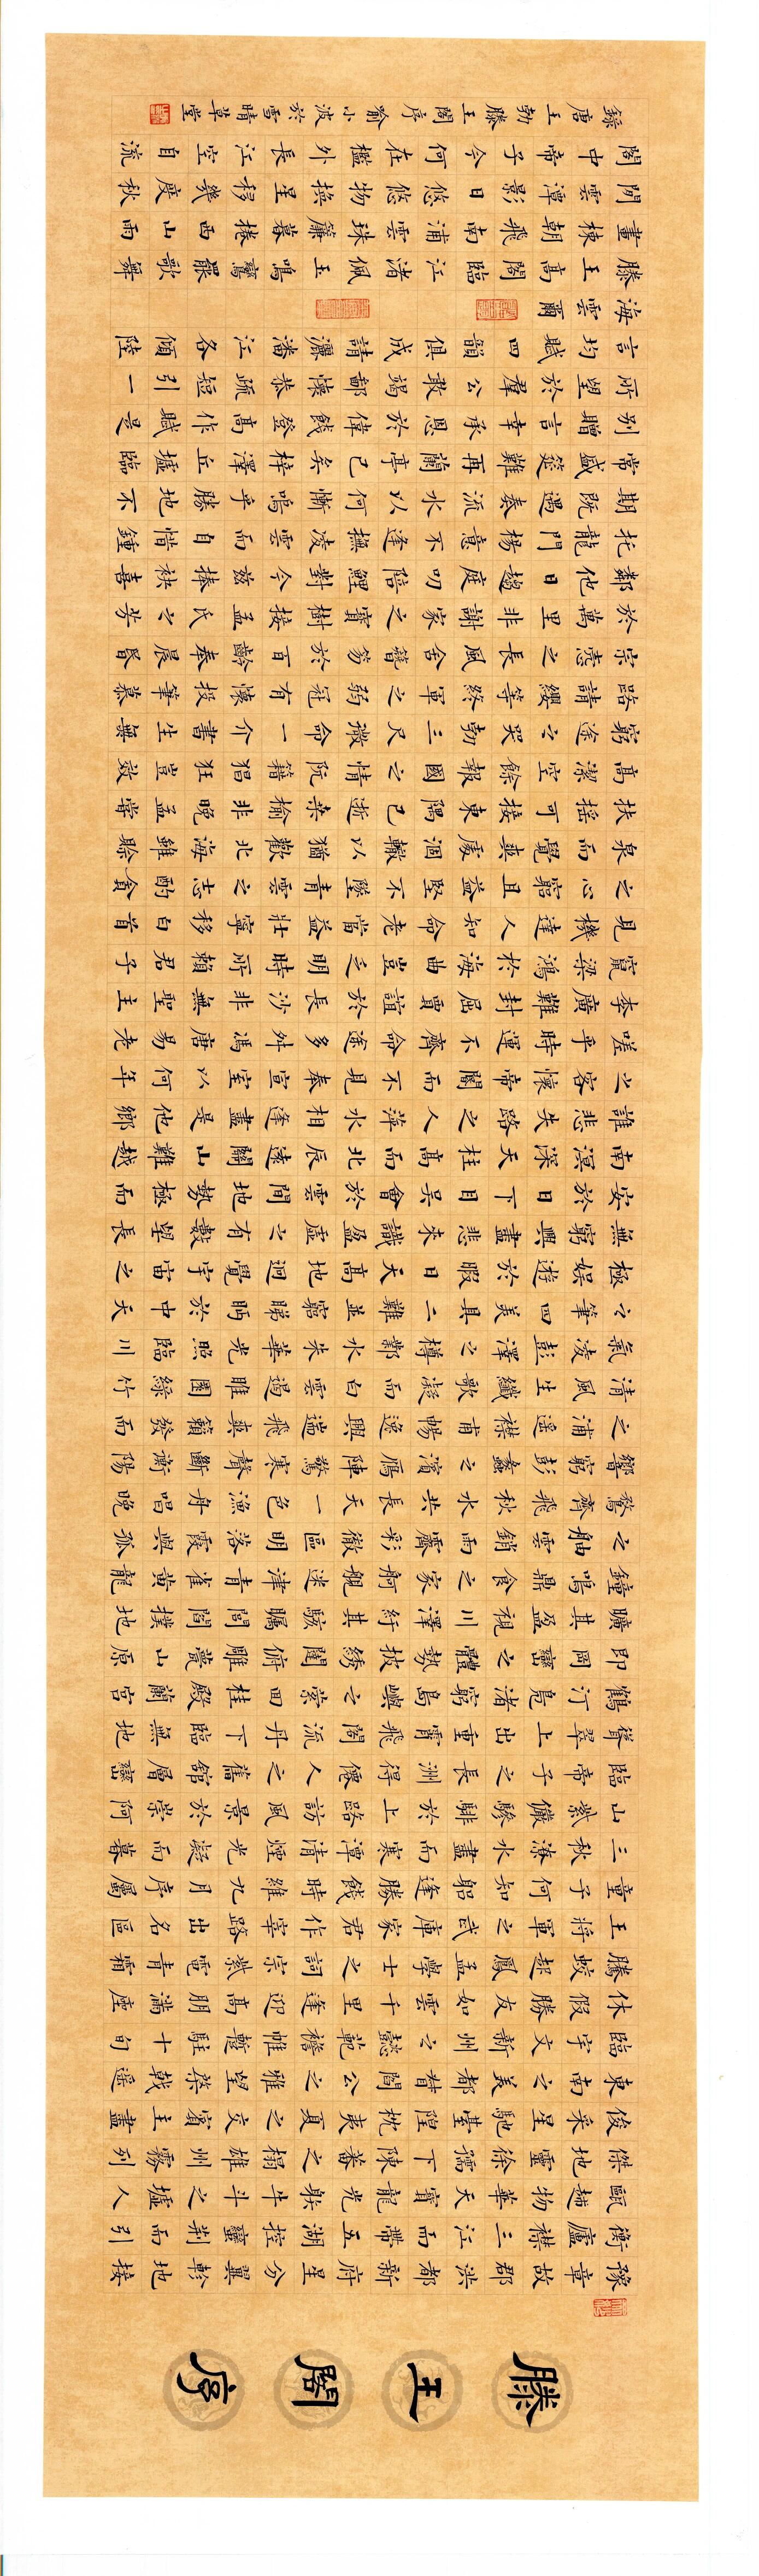 滕王閣序
豫章故郡洪都新府星分翼軫地接
衡廬襟三江而帶五湖控蠻荊而引
甌越物華天寶龍光射牛斗之墟人
傑地靈徐孺下陳蕃之榻雄州霧列
俊采星馳臺隍枕夷夏之交賓主盡
東南之美都督閻公之雅望棨戟遙
臨宇文新州之懿範襜帷暫駐十旬
休假勝友如雲千里逢迎高朋滿座
騰蛟起鳳孟學士之詞宗紫電青霜
王將軍之武庫家君作宰路出名區
童子何知躬逢勝餞時維九月序屬
三秋潦水盡而寒潭清煙光凝而暮
山紫儼驂騑於上路訪風景於崇阿
臨帝子之長洲得仙人之舊館層巒
聳翠上出重霄飛閣流丹下臨無地
鶴汀鳧渚窮島嶼之縈回桂殿蘭宮
即岡巒之體勢披綉闥俯雕甍山原
曠其盈視川澤紆其駭矚閭閻撲地
鐘鳴鼎食之家舸艦迷津青雀黃龍
之舳雲銷雨霽彩徹區明落霞與孤
鶩齊飛秋水共長天一色漁舟唱晚
響窮彭蠡之濱雁陣驚寒聲斷衡陽
之浦遥襟甫暢逸興遄飛爽籟發而
清風生纖歌凝而白雲遏睢園綠竹
氣凌彭澤之樽鄴水朱華光照臨川
之筆四美具二難並窮睇眄於中天
極娛遊於暇日天高地迥覺宇宙之
無窮興盡悲來識盈虛之有數望長
安於日下目吳會於雲間地勢極而
南溟深天柱高而北辰遠關山難越
誰悲失路之人萍水相逢盡是他鄉
之客懷帝閽而不見奉宣室以何年
嗟乎時運不齊命途多舛馮唐易老
李廣難封屈賈誼於長沙非無聖主
竄梁鴻於海曲豈乏明時所賴君子
見機達人知命老當益壯寧移白首
之心窮且益堅不墜青雲之志酌貪
泉而覺爽處涸轍以猶歡北海雖賒
扶搖可接東隅已逝桑榆非晚孟嘗
高潔空餘報國之情阮籍猖狂豈效
窮途之哭勃三尺微命一介書生無
路請纓等終軍之弱冠有懷投筆慕
宗愨之長風舍簪笏於百齡奉晨昏
於萬里非謝家之寶樹接孟氏之芳
鄰他日趨庭叨陪鯉對今茲捧袂喜
托龍門楊意不逢撫凌雲而自惜鍾
期既遇奏流水以何慚嗚乎勝地不
常盛筵難再蘭亭已矣梓澤丘墟臨
別贈言幸承恩於偉餞登高作賦是
所望於群公敢竭鄙懷恭疏短引一
言均賦四韻俱成請灑潘江各傾陸
海雲爾
滕王高閣臨江渚佩玉鳴鸞罷歌舞
畫棟朝飛南浦雲珠簾暮捲西山雨
閒雲潭影日悠悠物換星移幾度秋
閣中帝子今何在檻外長江空自流
錄唐王勃滕王閣序喻小波於雪晴草堂